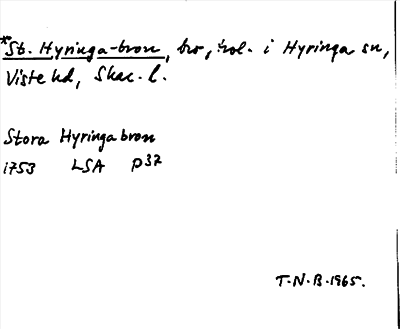 *St. Hyringa-bron, bro, trol. i Hyringa sn,
Viste hd, Skar. l.
Stora Hyringabron
1753 LSA P37
T.N.B. 1965.